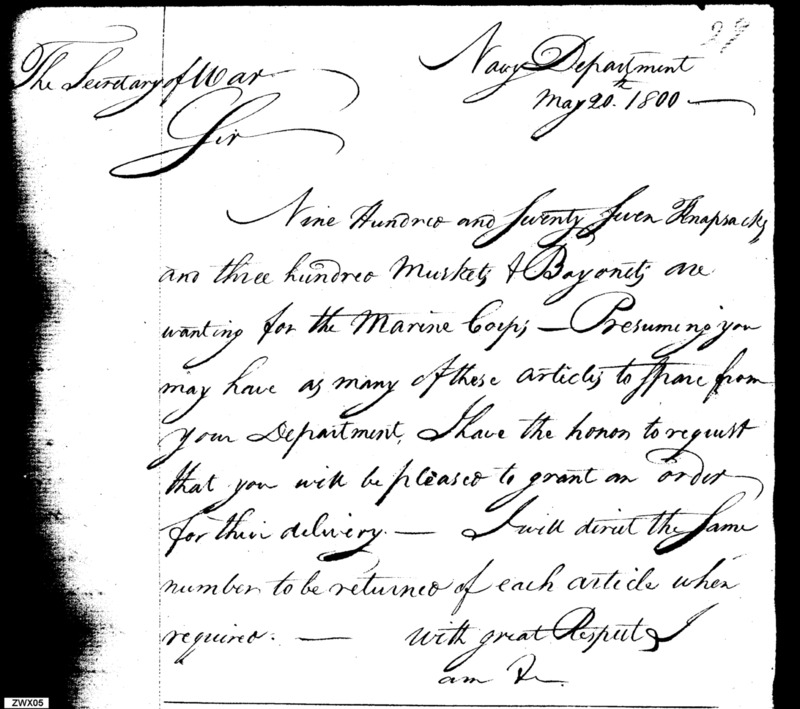 99
The Secretary of War
Navy Department
May 20th 1800
Sir
Nine Hundred and Seventy Seven Knapsacks
and three hundred Muskets & Bayonets are
wanting for the Marine Corps — Presuming you
may have as many of these articles to spare from
your Department, I have the honor to request
that you will be pleased to grant an order
for their delivery. — I will direct the same
number to be returned of each article when
required. — with great Respect I
am &c
ZWX05